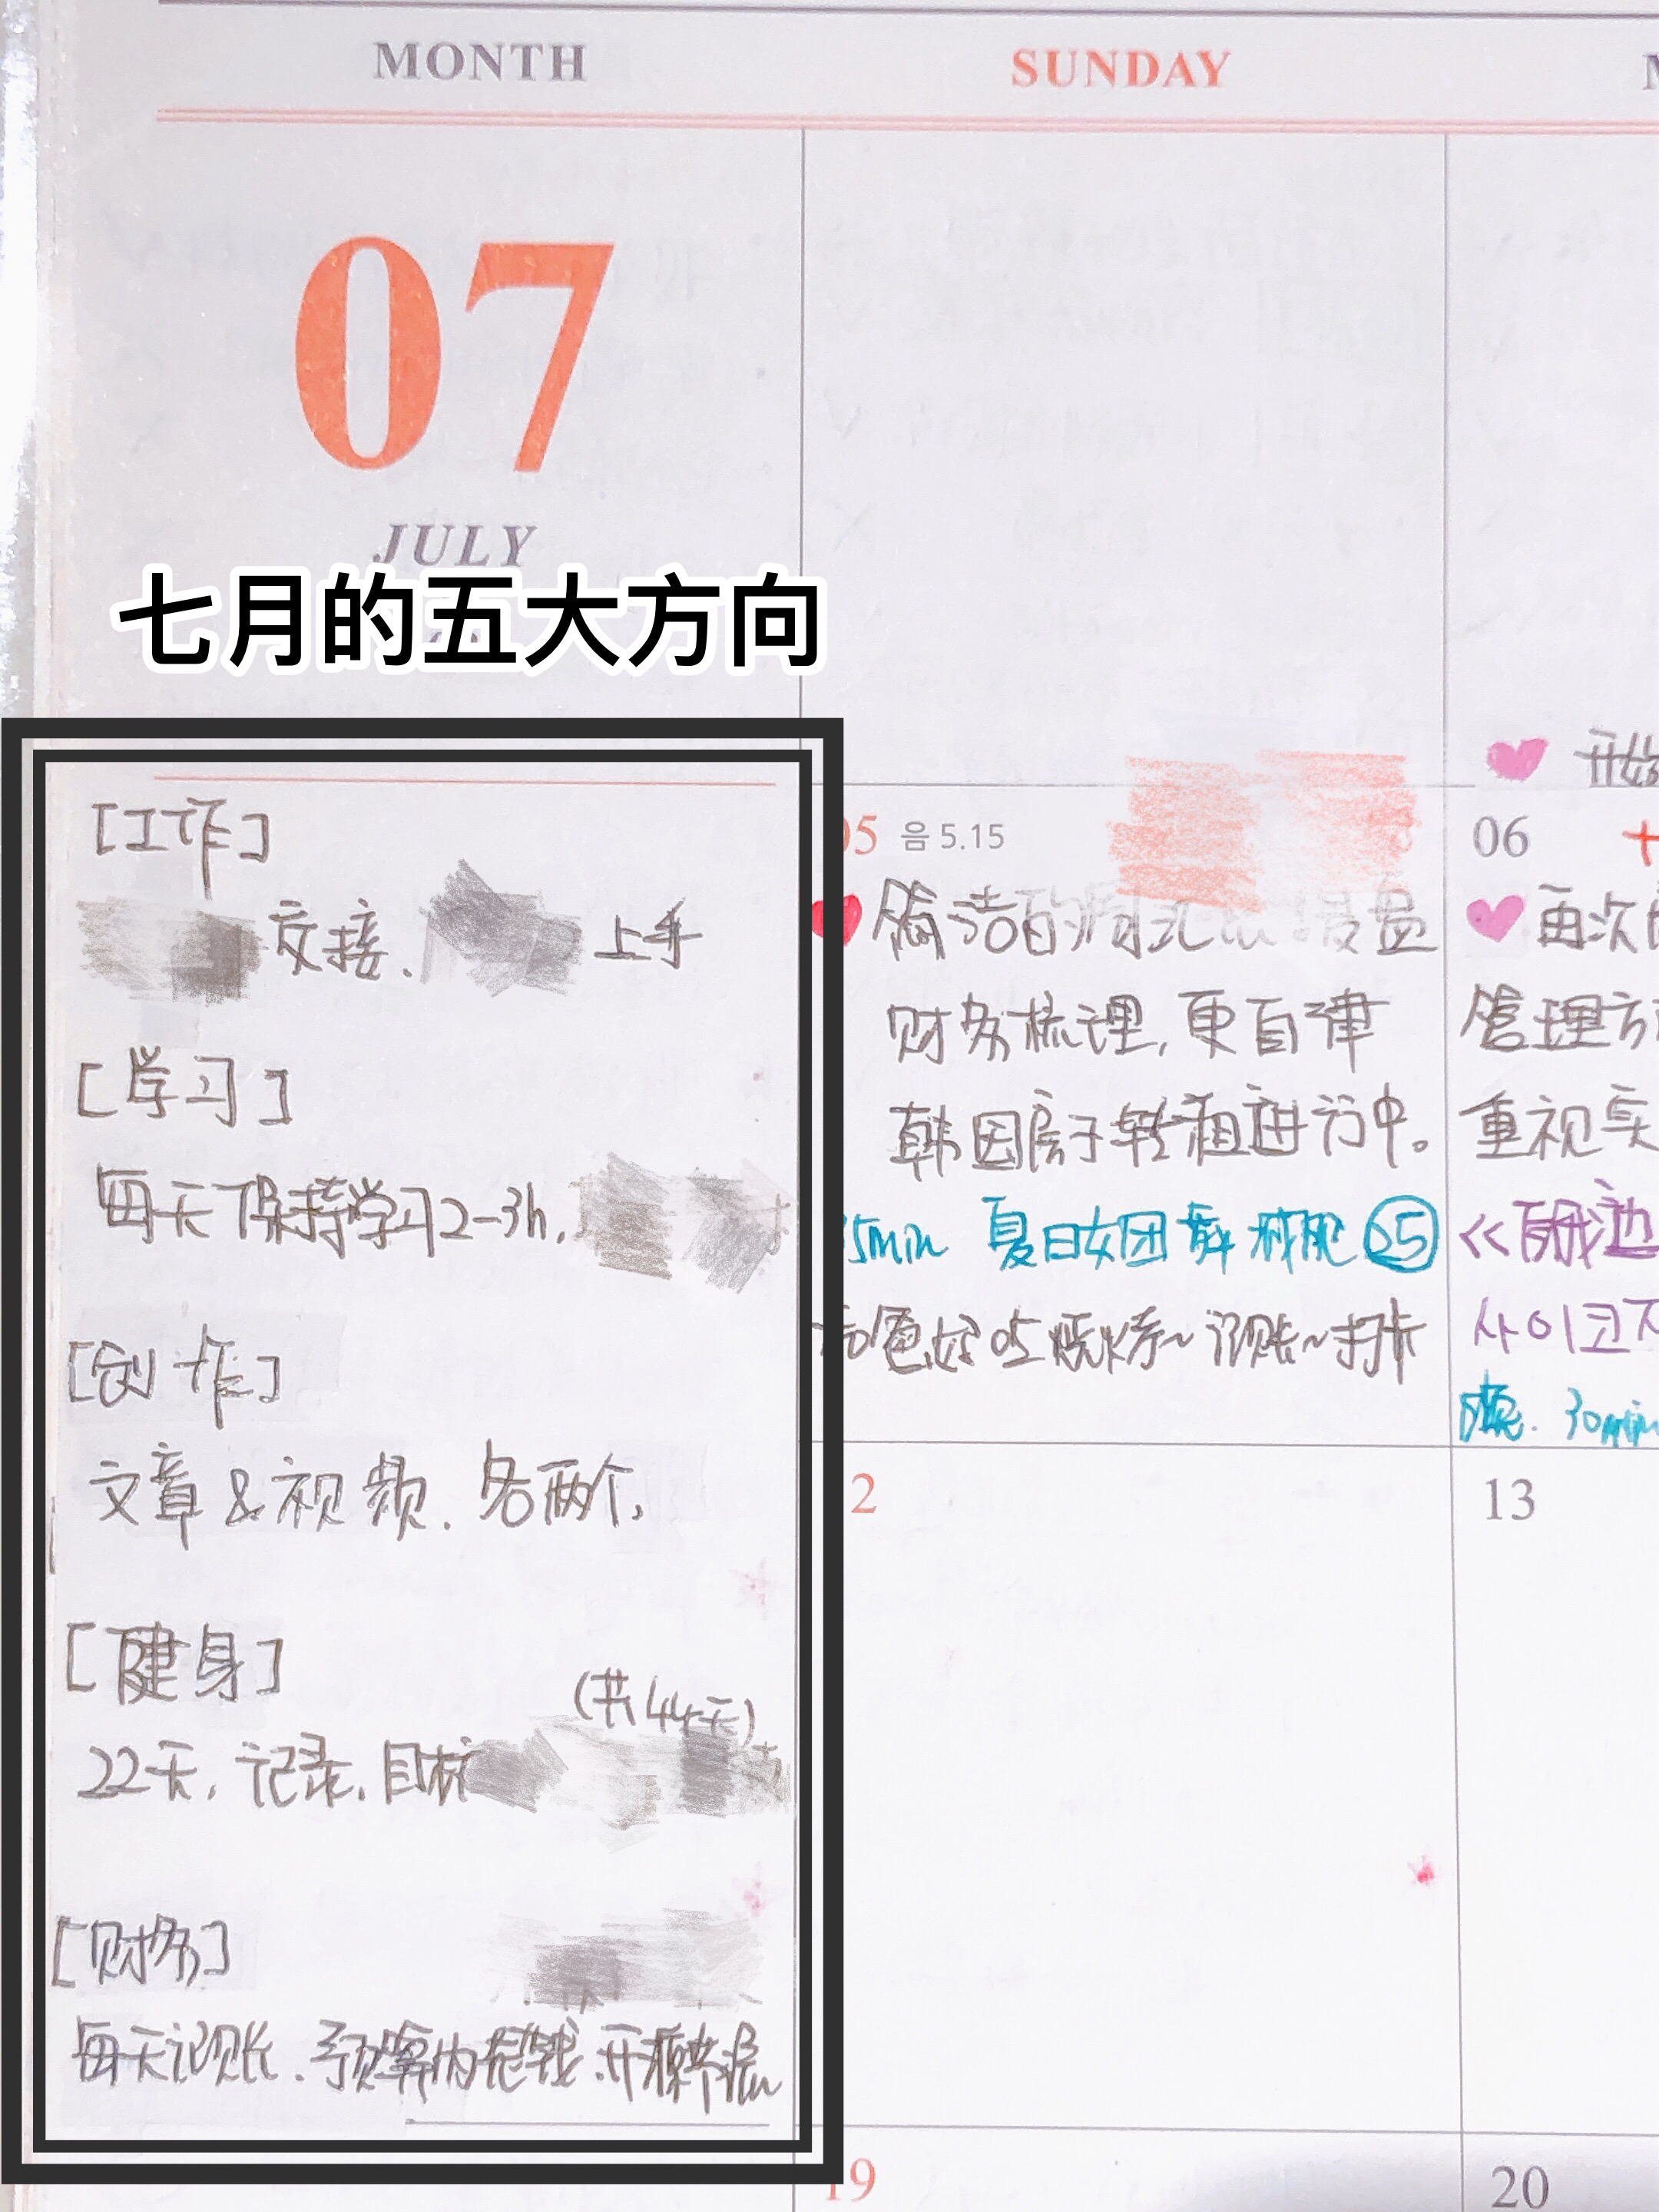 MONTH
SUNDAY
07
JULY
七月的五大方向
[工作]
交接. 上手
[学习]
每天保持学习2-3h.
[创作]
文章&视频. 各两个,
[健身]
(共44天)
22天, 记录, 目标
[财务]
每天记账. 预算内花钱. 开源节流
05 음 5.15
简洁的 设置
财务梳理, 更自律
韩国房子转租进行中。
15min 夏日女团舞 减肥 25
好吃 烧烤~记账~打卡
开始
06
再次
管理方
重视实
사이코지
腰. 30min
12
13
19
20